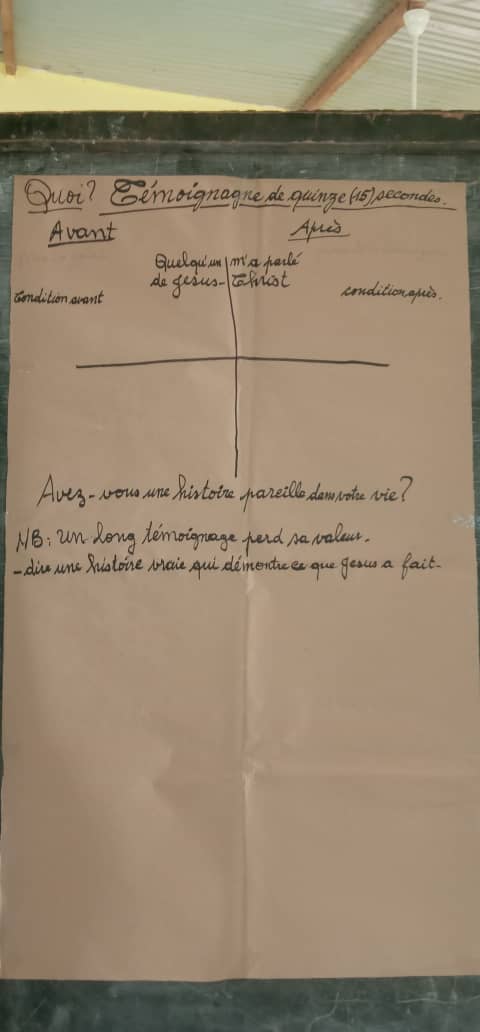 Quoi? Témoignagne de quinze (15) secondes.
Avant Après
Quelqu'un m'a parlé
de Jesus-Christ
Condition avant condition après.
Avez-vous une histoire pareille dans votre vie?
NB: Un long témoignage perd sa valeur.
- dire une histoire vraie qui démontre ce que Jesus a fait-